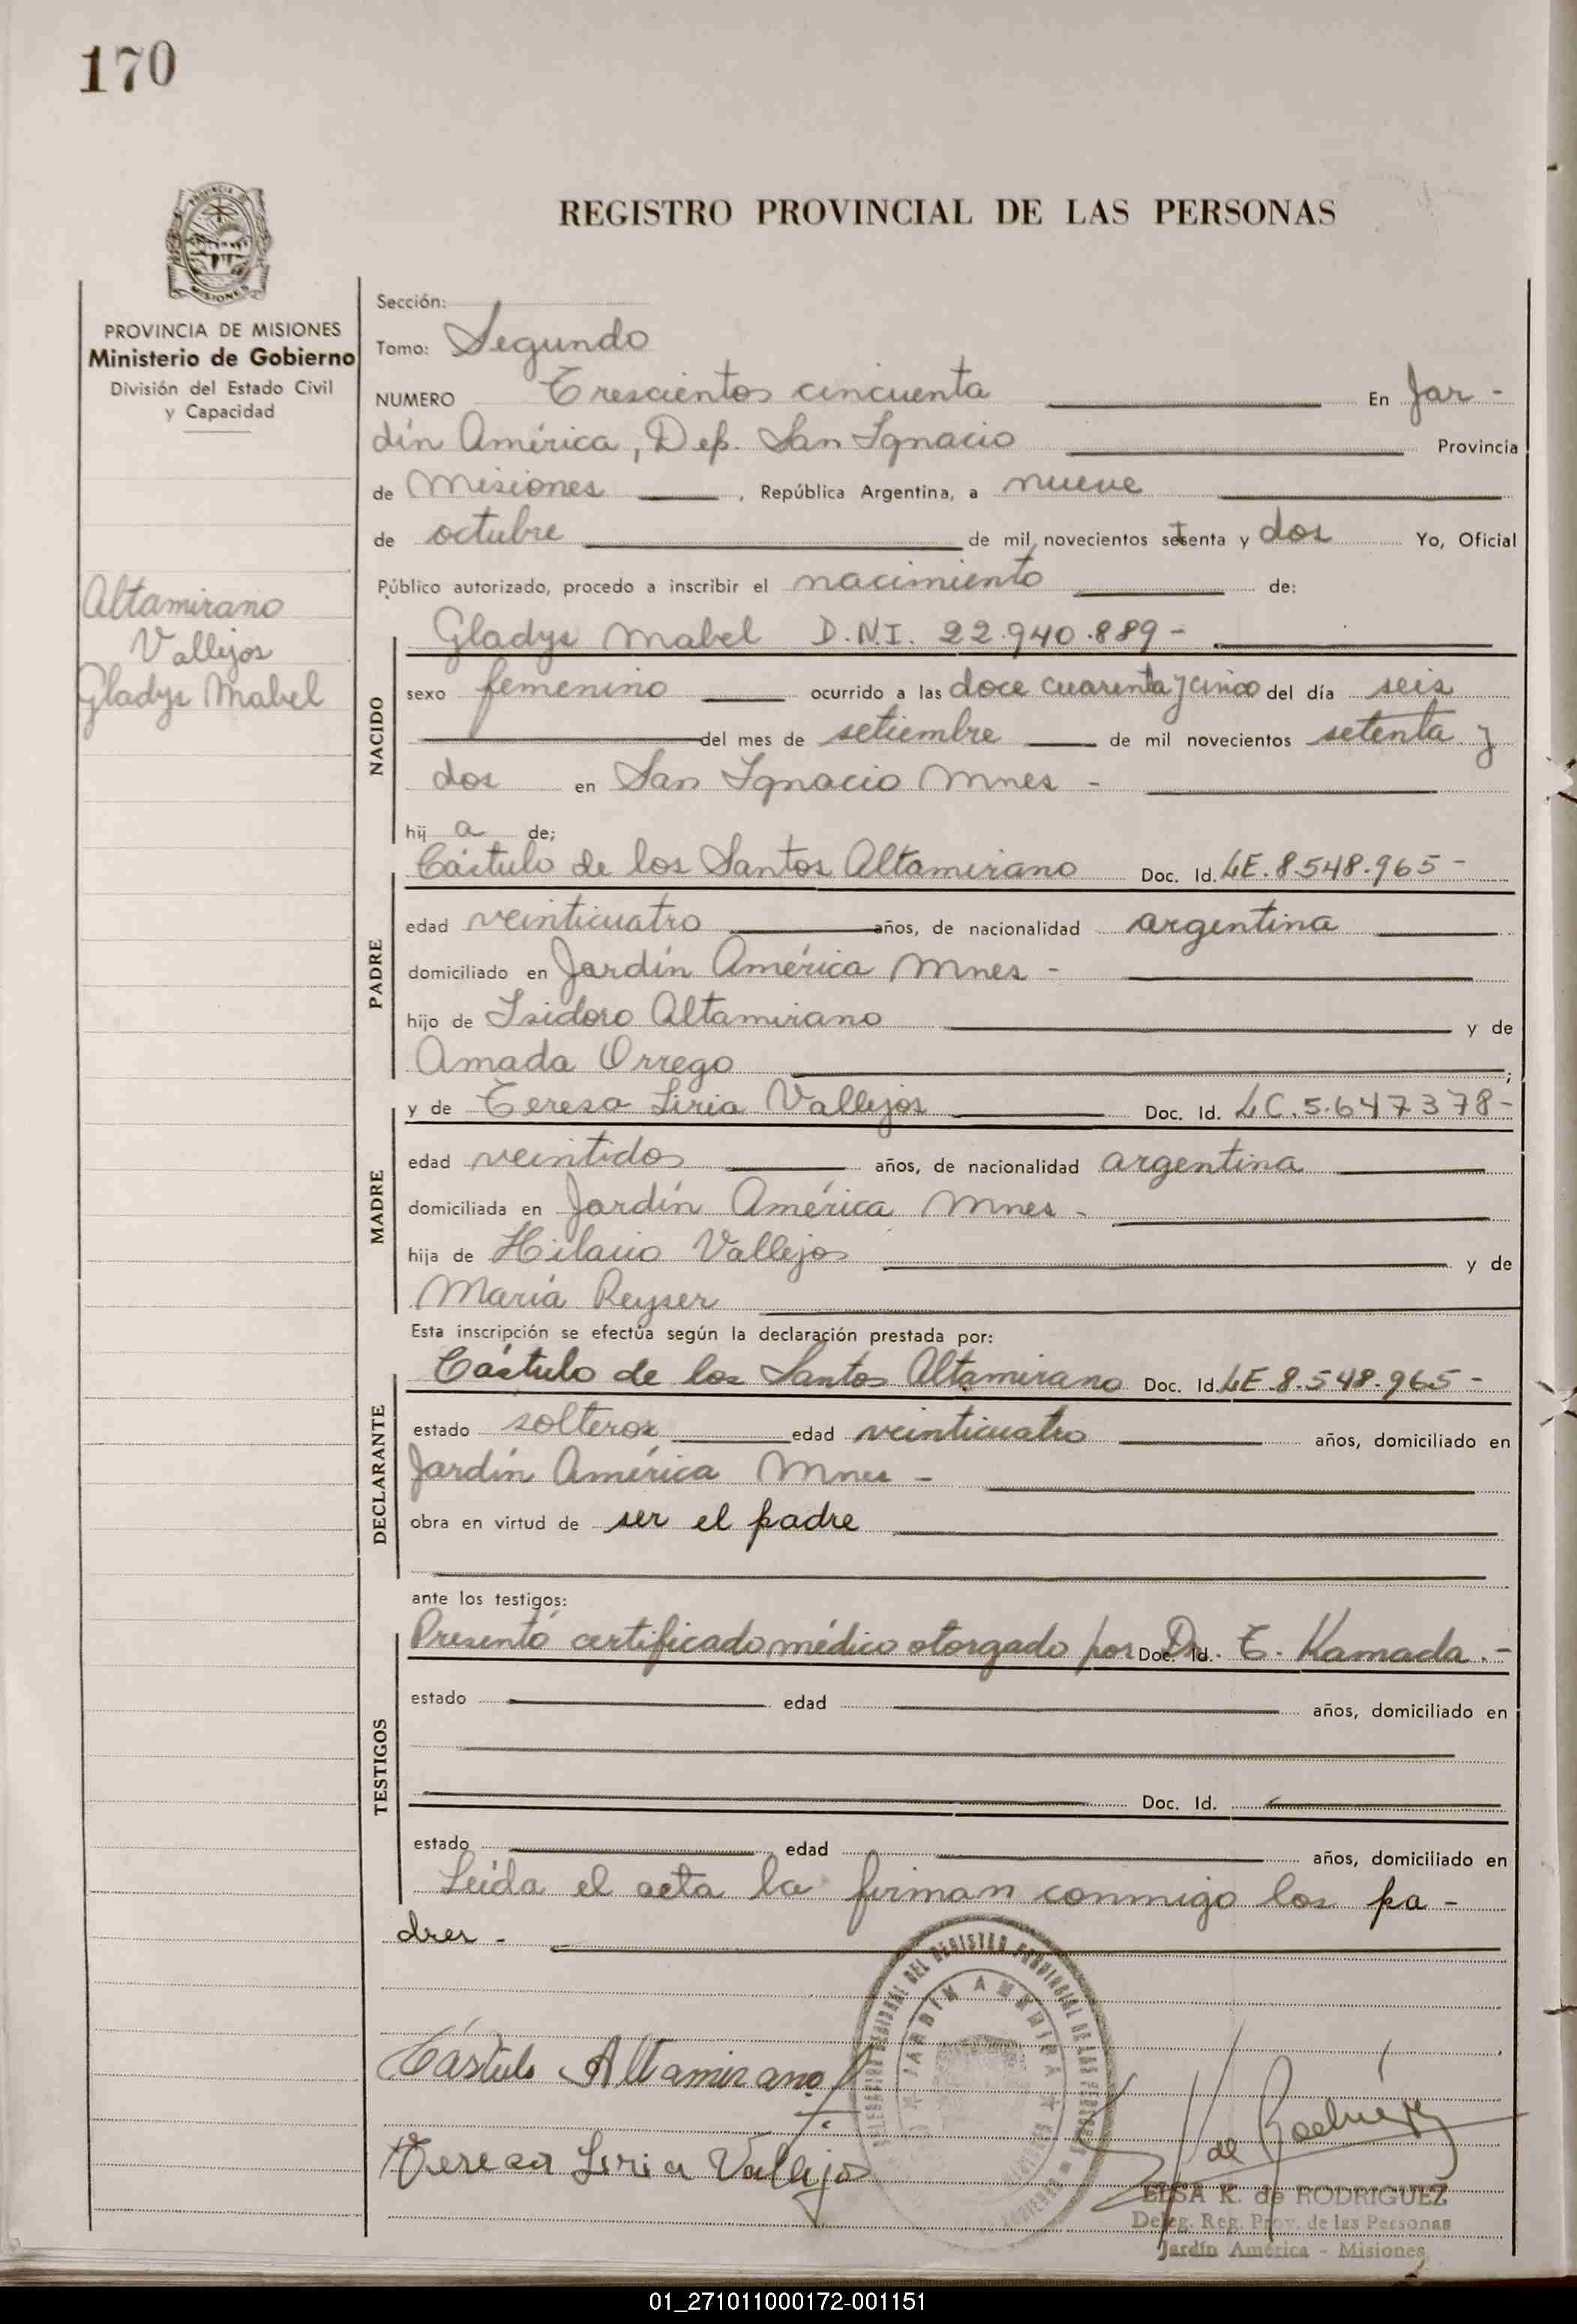 170
PROVINCIA DE
MISIONES
REGISTRO PROVINCIAL DE LAS PERSONAS
PROVINCIA DE MISIONES
Ministerio de Gobierno
División del Estado Civil
y Capacidad
Altamirano
Vallejos
Gladys Mabel
Sección:
Tomo: Segundo
NUMERO Trescientos cincuenta En Jar-
dín América, Dep. San Ignacio Provincia
de Misiones, República Argentina, a nueve
de octubre de mil novecientos setenta y dos Yo, Oficial
Público autorizado, procedo a inscribir el nacimiento de:
Gladys Mabel D.N.I. 22.940.889-
NACIDO
sexo femenino ocurrido a las doce cuarenta y cinco del día seis
del mes de setiembre de mil novecientos setenta y
dos en San Ignacio Mnes -
hij a de;
Cástulo de los Santos Altamirano Doc. Id. LE. 8.548.965-
PADRE
edad veinticuatro años, de nacionalidad argentina
domiciliado en Jardín América Mnes -
hijo de Isidoro Altamirano y de
Amada Orrego ;
y de Teresa Liria Vallejos Doc. Id. LC. 5.647378-
MADRE
edad veintidos años, de nacionalidad argentina
domiciliada en Jardín América Mnes -
hija de Hilario Vallejos y de
María Reyser
Esta inscripción se efectúa según la declaración prestada por:
Cástulo de los Santos Altamirano Doc. Id. LE. 8.548.965-
DECLARANTE
estado solteros edad veinticuatro años, domiciliado en
Jardín América Mnes -
obra en virtud de ser el padre
ante los testigos:
Presentó certificado médico otorgado por Doc. Id. Dr. T. Kamada.-
TESTIGOS
estado edad años, domiciliado en
Doc. Id.
estado edad años, domiciliado en
Leída el acta la firman conmigo los pa-
dres -
Cástulo Altamirano
Teresa Liria Vallejos
DEL REGISTRO PROVINCIAL DE LAS
JARDIN AMERICA
de Rodríguez
ELSA K. de RODRIGUEZ
Deleg. Reg. Prov. de las Personas
Jardín América - Misiones
01_271011000172-001151